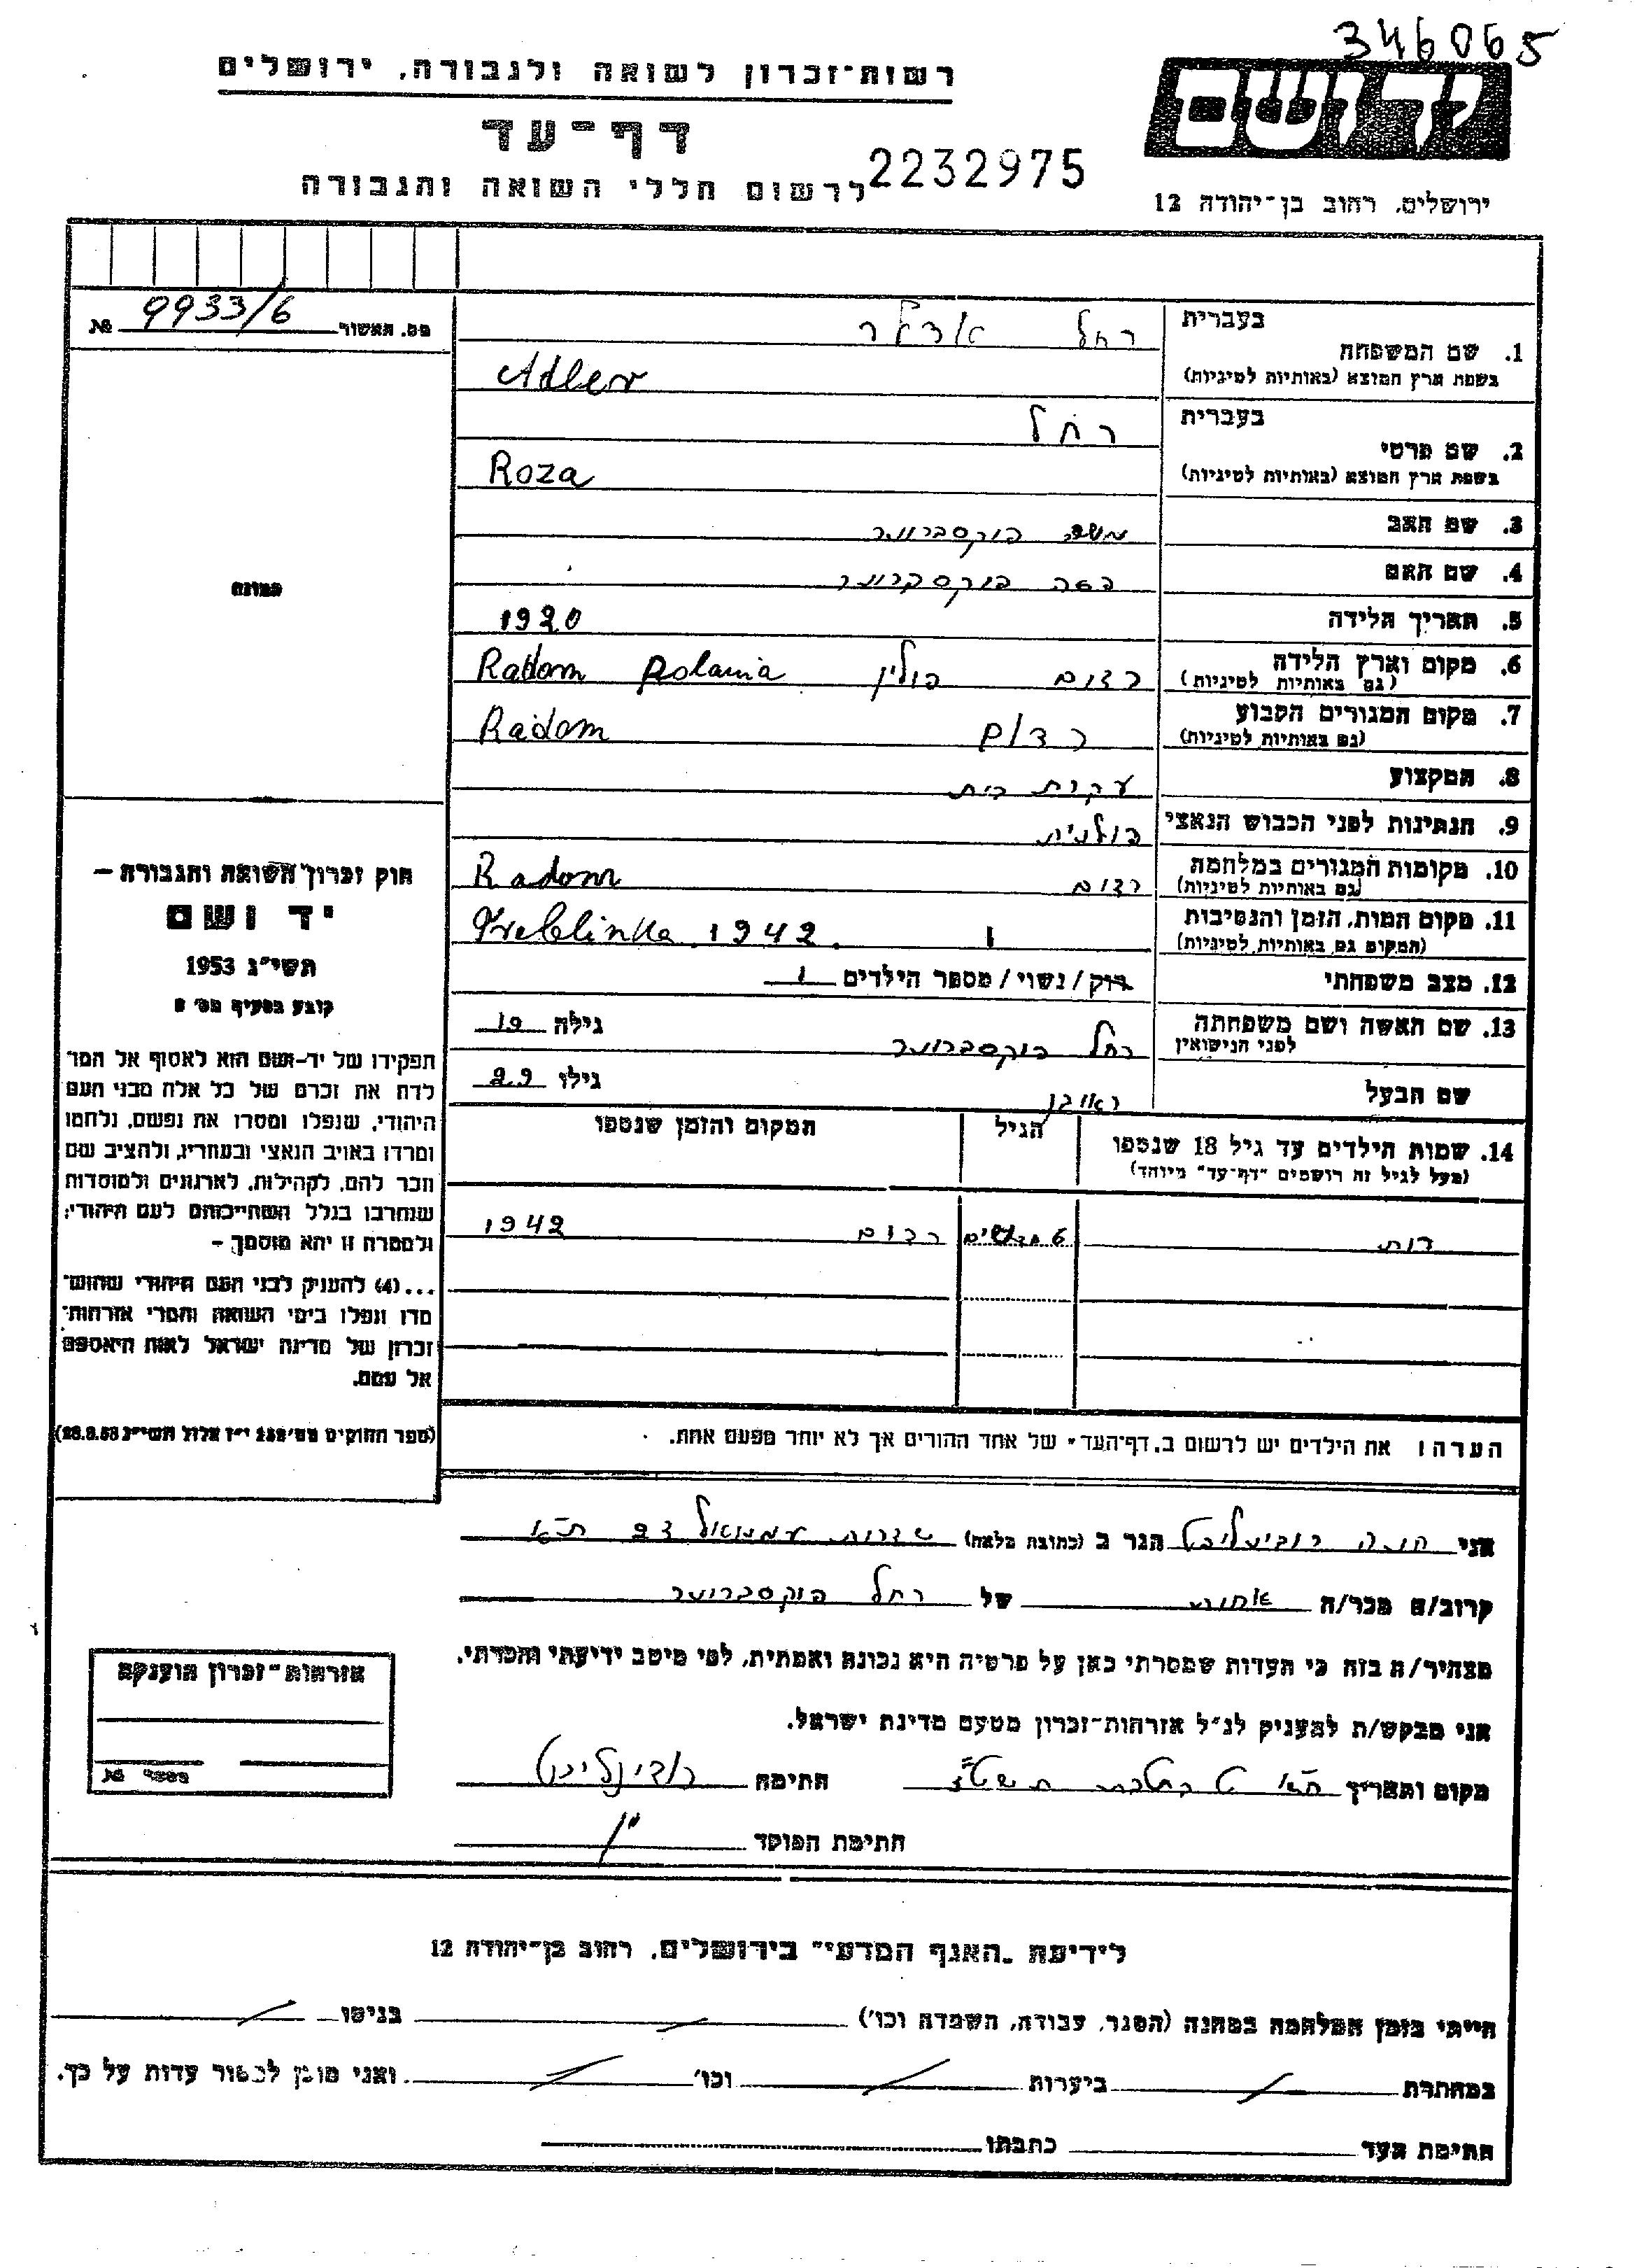 346065
רשות־זכרון לשואה ולגבורה, ירושלים
דף־עד
לרשום חללי השואה והגבורה
2232975
ידושם
ירושלים, רחוב בן־יהודה 12
מס. האשור 9933/6 №
תמונה
חוק זכרון השואה והגבורה –
יד ושם
תשי״ג 1953
קובע בסעיף מס׳ 2
תפקידו של יד-ושם הוא לאסוף אל המו־
לדת את זכרם של כל אלה מבני העם
היהודי, שנפלו ומסרו את נפשם, נלחמו
ומרדו באויב הנאצי ובעוזריו, ולהציב שם
וזכר להם, לקהילות, לארגונים ולמוסדות
שנחרבו בגלל השתייכותם לעם היהודי;
ולמטרה זו יהא מוסמך –
...(4) להעניק לבני העם היהודי שהוש־
מדו ונפלו בימי השואה והמרי אזרחות־
זכרון של מדינת ישראל לאות היאספם
אל עמם.
(ספר החוקים מס׳ 132 י״ז אלול תשי״ג 28.8.53)
1. שם המשפחה בעברית רחל אדלר
בשפת ארץ המוצא (באותיות לטיניות) Adler
2. שם פרטי בעברית רחל
בשפת ארץ המוצא (באותיות לטיניות) Roza
3. שם האב משה פוקסברומר
4. שם האם פוקסברומר
5. תאריך הלידה 1920
6. מקום וארץ הלידה (גם באותיות לטיניות) רדום פולין Radom Polania
7. מקום המגורים הקבוע (גם באותיות לטיניות) רדום Radom
8. המקצוע עקרת בית
9. הנתינות לפני הכבוש הנאצי פולנית
10. מקומות המגורים במלחמה (גם באותיות לטיניות) רדום Radom
11. מקום המות, הזמן והנסיבות (המקום גם באותיות לטיניות) Treblinka 1942
12. מצב משפחתי רוק/נשוי/מספר הילדים 1
13. שם האשה ושם משפחתה לפני הנישואין רחל פוקסברומר גילה 19
שם הבעל ראובן גילו 29
14. שמות הילדים עד גיל 18 שנספו הגיל המקום והזמן שנספו
(מעל לגיל זה רושמים "דף־עד" מיוחד)
רות 6 חדשים רדום 1942
הערה: את הילדים יש לרשום ב„דף־העד" של אחד ההורים אך לא יותר מפעם אחת.
אני חנה הגר ב (כתובת מלאה) שדרות עמנואל ת״א
קרוב/ם מכר/ה אחות של רחל פוקסברומר
מצהיר/ה בזה כי העדות שמסרתי כאן על פרטיה היא נכונה ואמתית, לפי מיטב ידיעתי והכרתי.
אני מבקש/ת להעניק לנ״ל אזרחות־זכרון מטעם מדינת ישראל.
מקום ותאריך ת״א חתימה
חתימת הפוקד
אזרחות־זכרון הוענקה
מספר №
לידיעת „האגף המדעי" בירושלים, רחוב בן־יהודה 12
הייתי בזמן המלחמה במחנה (הסגר, עבודה, השמדה וכו׳) בגיטו
במחתרת ביערות וכו׳ ואני מוכן למסור עדות על כך.
חתימת העד כתבתו